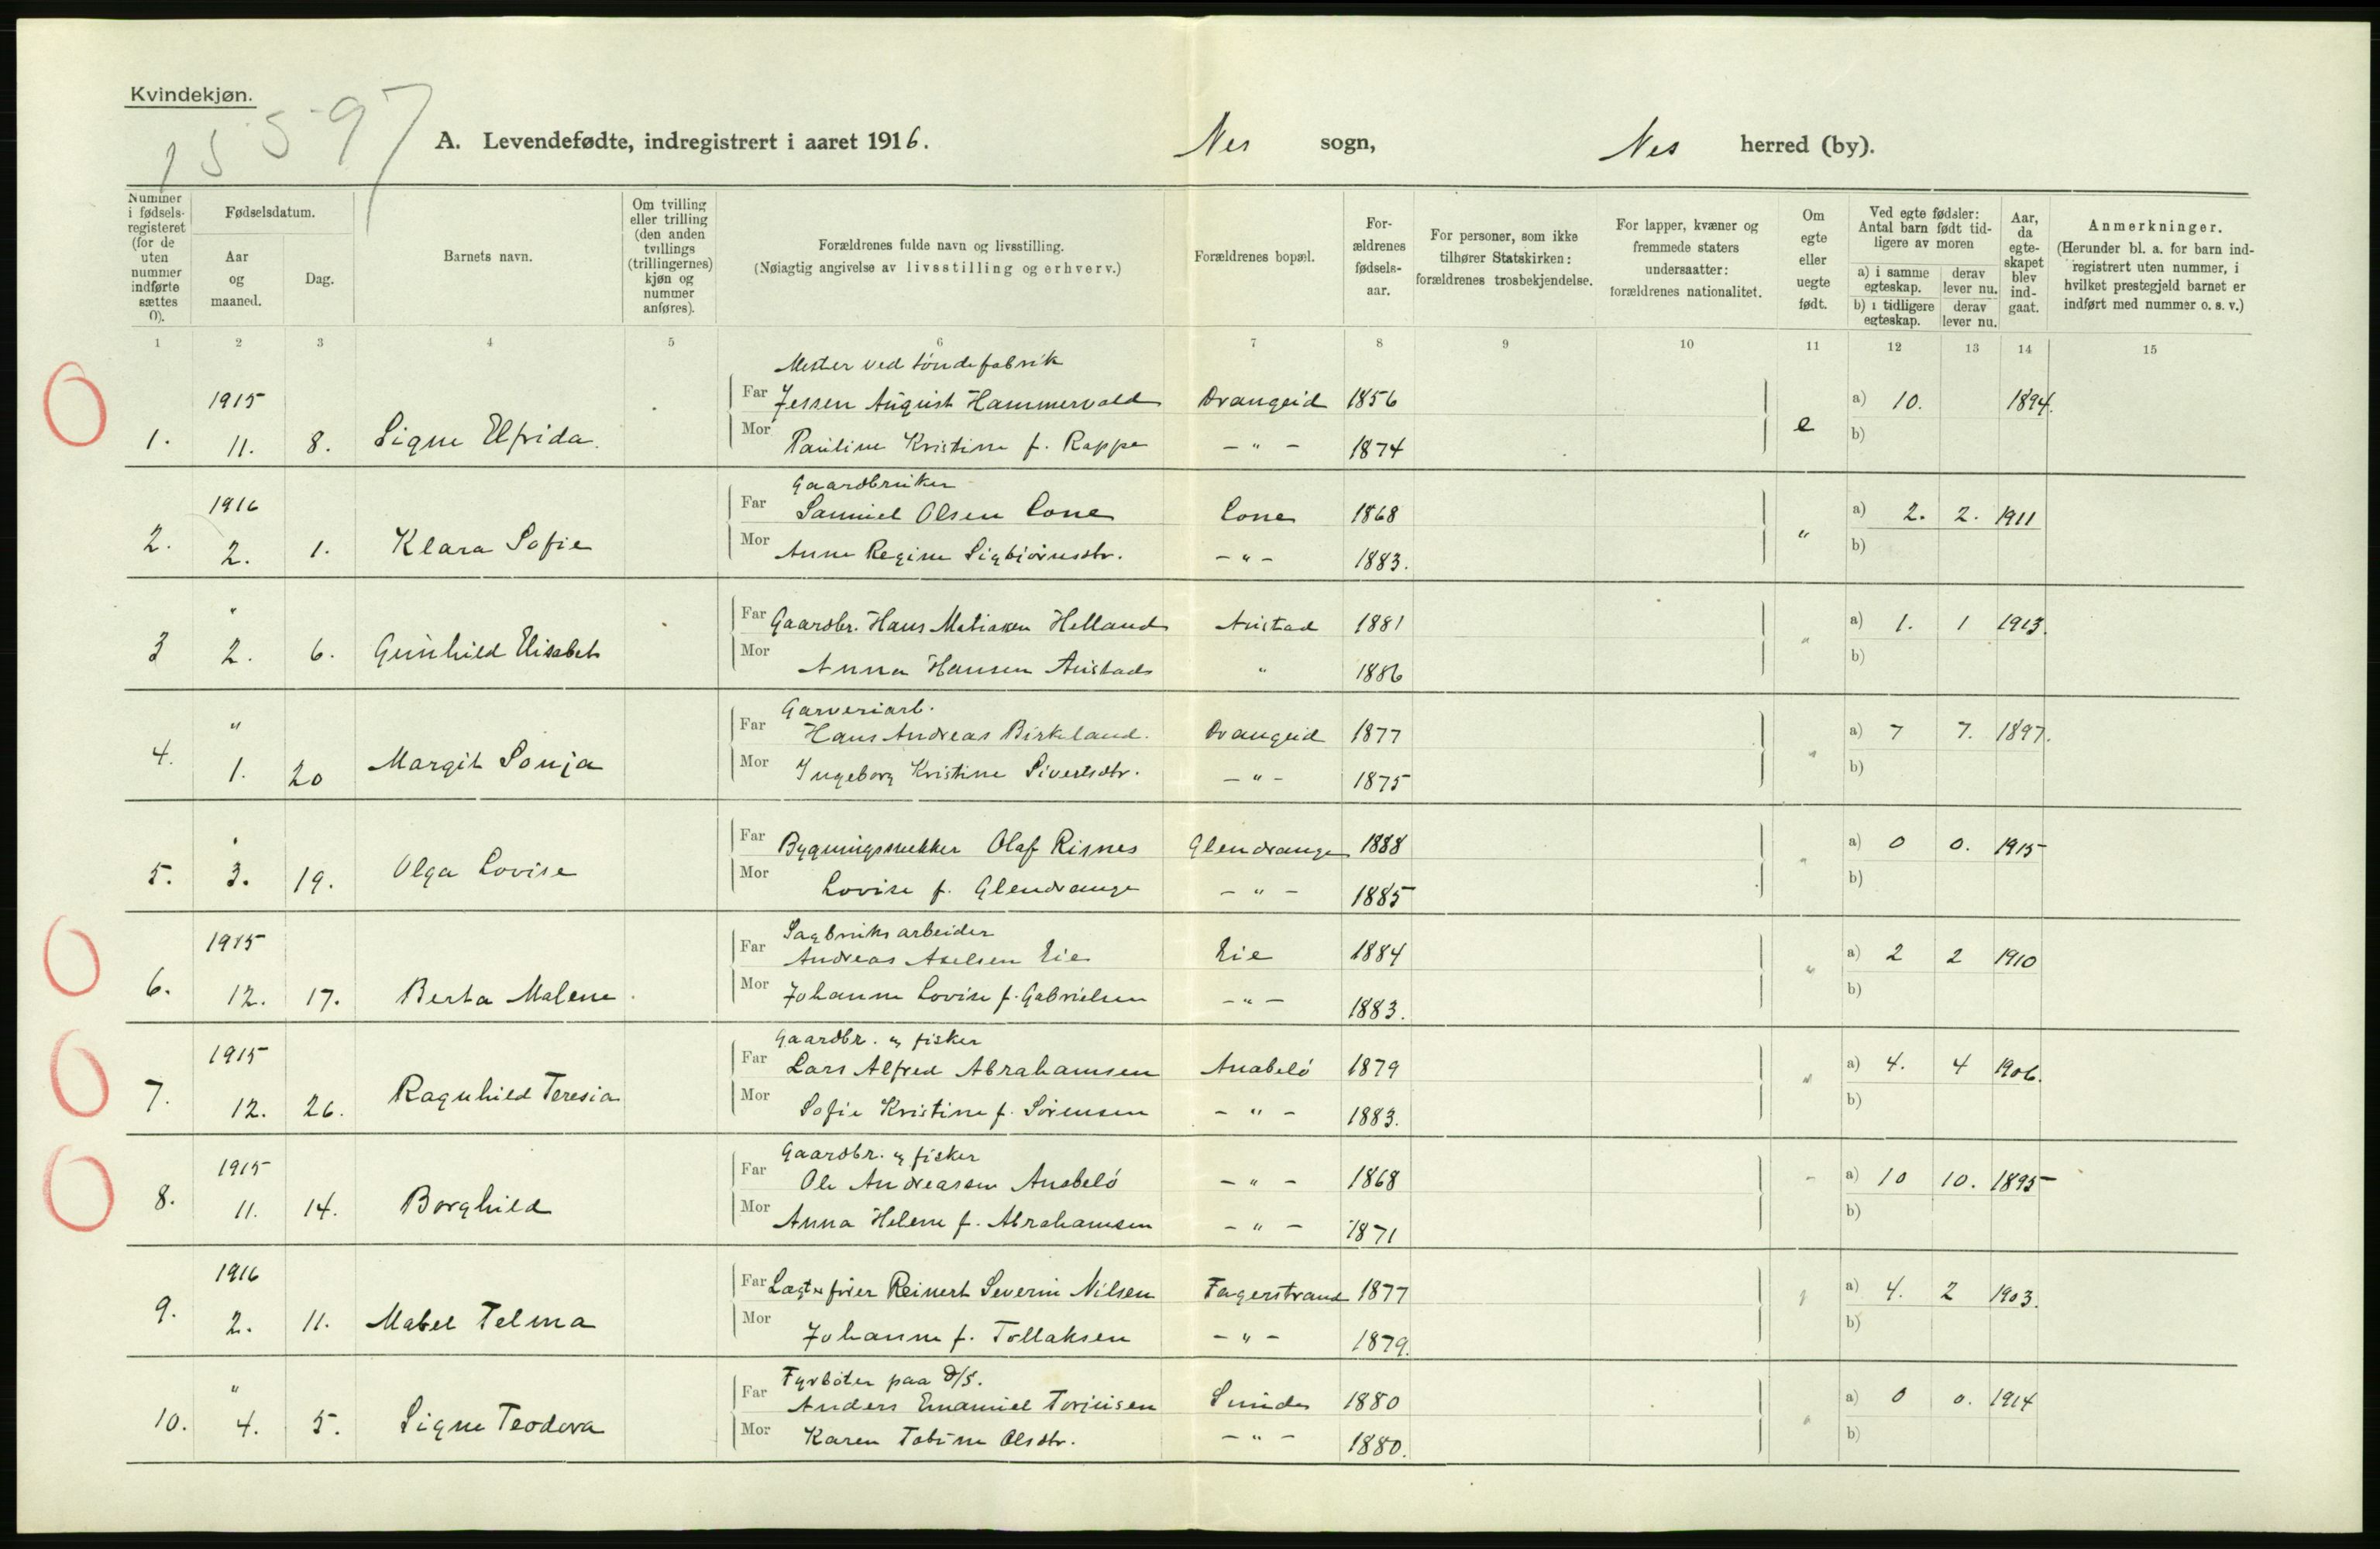 Kvindekjøn.
15597
A. Levendefødte, indregistrert i aaret 1916. Nes sogn, Nes herred (by).
Nummer i fødselsregisteret (for de uten nummer indførte sættes 0).
Fødselsdatum.
Aar og maaned.
Dag.
Barnets navn.
Om tvilling eller trilling (den anden tvillings (trillingernes) kjøn og nummer anføres).
Forældrenes fulde navn og livsstilling.
(Nøiagtig angivelse av livsstilling og erhverv.)
Forældrenes bopæl.
Forældrenes fødselsaar.
For personer, som ikke tilhører Statskirken: forældrenes trosbekjendelse.
For lapper, kvæner og fremmede staters undersaatter: forældrenes nationalitet.
Om egte eller uegte født.
Ved egte fødsler: Antal barn født tidligere av moren
a) i samme egteskap. derav lever nu.
b) i tidligere egteskap. derav lever nu.
Aar, da egteskapet blev indgaat.
Anmerkninger.
(Herunder bl. a. for barn indregistrert uten nummer, i hvilket prestegjeld barnet er indført med nummer o. s. v.)
1 2 3 4 5 6 7 8 9 10 11 12 13 14 15
Mester ved tøndefabrik
0 1915 Far Jessen August Hammervold Drangeid 1856 a) 10. 1894.
1. 11. 8. Signe Elfrida. Mor Pauline Kristine f. Rappe - " - 1874 e b)
Gaardbruker
1916 Far Samuel Olsen Lone Lone 1868 a) 2. 2. 1911
2. 2. 1. Klara Sofie Mor Anne Regine Sigbjørnsdtr. - " - 1883. " b)
" Far Gaardbr. Hans Matiasen Helland Austad 1881 a) 1. 1 1913.
3 2. 6. Gunhild Elisabet Mor Anna Hansen Austad " 1886 " b)
Garveriarb.
" Far Hans Andreas Birkeland. Drangeid 1877 a) 7 7. 1897.
4. 1. 20 Margit Sonja Mor Ingeborg Kristine Sivertsdtr. - " - 1875 " b)
" Far Bygningssnekker Olaf Risnes Glendrange 1888 a) 0 0. 1915
5. 3. 19. Olga Lovise Mor Lovise f. Glendrange - " - 1885 " b)
Sagbruksarbeider
0 1915 Far Andreas Axelsen Eie Eie 1884 a) 2 2 1910
6. 12. 17. Berta Malene. Mor Johanne Lovise f. Gabrielsen - " - 1883. " b)
Gaardbr. og fisker
0 1915 Far Lars Alfred Abrahamsen Anabelø 1879 a) 4. 4 1906.
7. 12. 26. Ragnhild Teresia Mor Sofie Kristine f. Sørensen - " - 1883. " b)
Gaardbr. og fisker
0 1915 Far Ole Andreassen Anabelø - " - 1868 a) 10 10. 1895
8. 11. 14. Borghild Mor Anna Helene f. Abrahamsen - " - 1871 b)
1916 Far Reinert Severin Nilsen Fagerstrand 1877 a) 4. 2 1903.
9. 2. 11. Mabel Telma Mor Johanne f. Tollaksen - " - 1879. b)
Fyrbøter paa D/S.
" Far Anders Emanuel Torjusen Sunde 1880 a) 0 0. 1914
10. 4. 5. Signe Teodora Mor Karen Tobine Olsdtr. - " - 1880. " b)